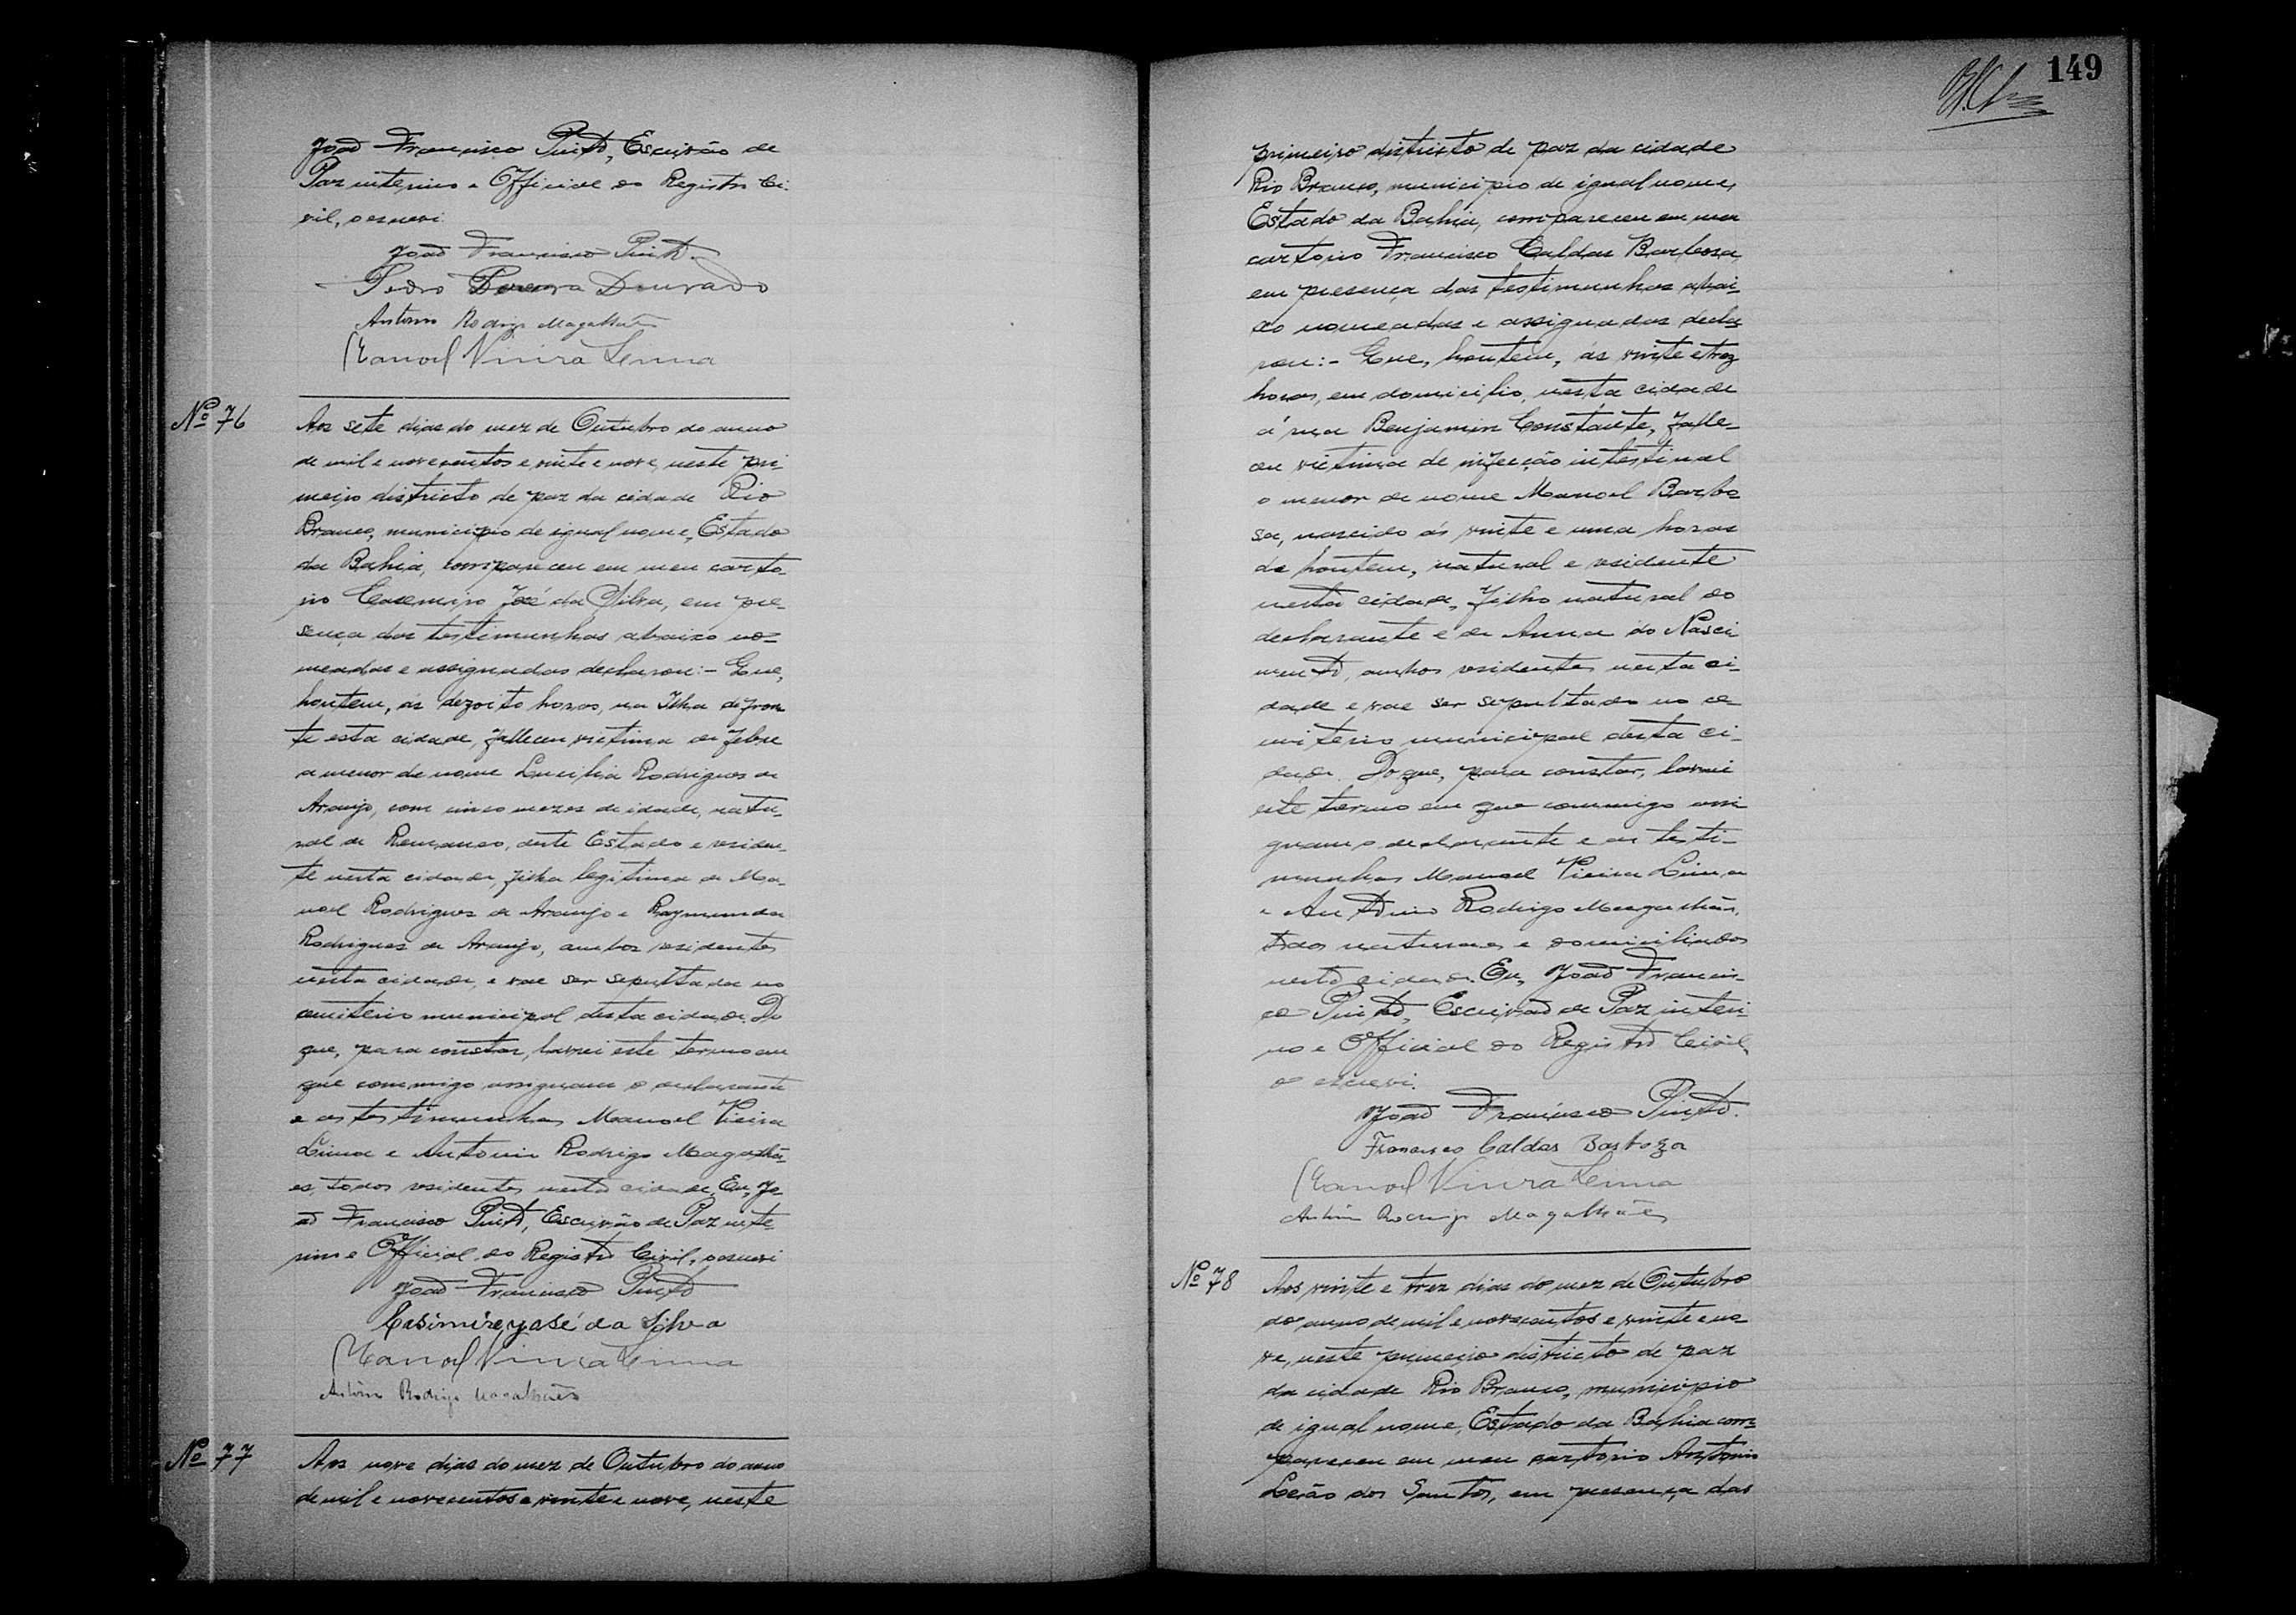 João Francisco Pinto, Escrivão de
Paz interino e Official do Registro Ci-
vil, o escrevi.
João Francisco Pinto.
Pedro Pereira Dourado
Antonio Rodrigo Magalhães
Manoel Vieira Lima
Nº 76
Aos sete dias do mez de Outubro do anno
de mil e novecentos e vinte e nove, neste pri-
meiro districto de paz da cidade Rio
Branco, municipio de igual nome, Estado
da Bahia, compareceu em meu carto-
rio Casemiro José da Silva, em pre-
sença das testimunhas abaixo no-
meadas e assignadas declarou:- Que,
hontem, ás dezoito horas, na Ilha defron
te esta cidade, falleceu victima de febre
a menor de nome Lucilia Rodrigues de
Araujo, com cinco mezes de idade, natu-
ral de Remanso, deste Estado e residen-
te nesta cidade, filha legitima de Ma-
noel Rodrigues de Araujo e Raymunda
Rodrigues de Araujo, ambos residentes
nesta cidade, e vae ser sepultada no
cemiterio municipal desta cidade. Do
que, para constar, lavrei este termo em
que commigo assignam o declarante
e as testimunhas Manoel Vieira
Lima e Antonio Rodrigo Magalhã-
es, todos residentes nesta cidade. Eu, Jo-
ão Francisco Pinto, Escrivão de Paz inte-
rino e Official do Registro Civil, o escrevi
João Francisco Pinto
Casimiro José da Silva
Manoel Vieira Lima
Antonio Rodrigo Magalhães
Nº 77
Aos nove dias do mez de Outubro do anno
de mil e novecentos e vinte e nove, neste
149
primeiro districto de paz da cidade
Rio Branco, municipio de igual nome,
Estado da Bahia, compareceu em meu
cartorio Francisco Caldas Barbosa,
em presença das testimunhas abai-
xo nomeadas e assignadas decla-
rou:- Que, hontem, ás vinte e trez
horas, em domicilio, nesta cidade
á rua Benjamin Constante, falle-
ceu victima de infecção intestinal
o menor de nome Manoel Barbo-
sa, nascido ás vinte e uma horas
de hontem, natural e residente
nesta cidade, filho natural do
declarante e de Anna do Nasci
mento, ambos residentes nesta ci-
dade e vae ser sepultado no ce-
miterio municipal desta ci-
dade. Do que, para constar, lavrei
este termo em que commigo assi
gnam o declarante e as testi-
munhas Manoel Vieira Lima
e Antonio Rodrigo Magalhães,
todos naturaes e domiciliados
nesta cidade. Eu, João Francis-
co Pinto, Escrivão de Paz interi-
no e Official do Registro Civil,
o escrevi.
João Francisco Pinto.
Francisco Caldas Barboza
Manoel Vieira Lima
Antonio Rodrigo Magalhães
Nº 78
Aos vinte e trez dias do mez de Outubro
do anno de mil e novecentos e vinte e no-
ve, neste primeiro districto de paz
da cidade Rio Branco, municipio
de igual nome, Estado da Bahia com-
pareceu em meu cartorio Antonio
Leão dos Santos, em presença das